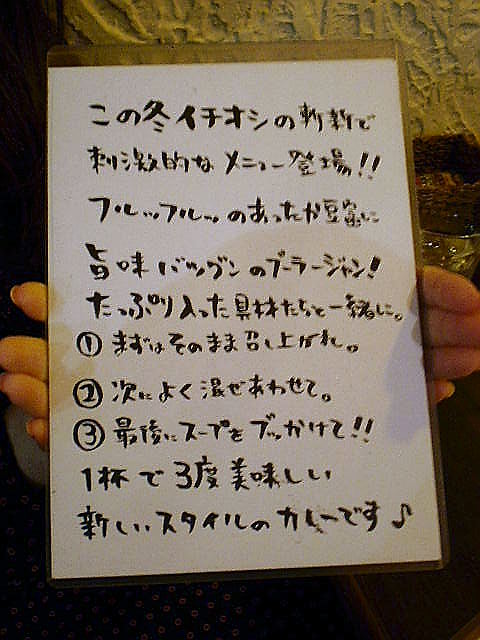 この冬イチオシの斬新で
刺激的なメニュー登場!!
フルッフルッのあったか豆富に
旨味バツグンのブーラージャン!
たっぷり入った具材たちと一緒に。
①まずはそのまま召し上がれ。
②次によく混ぜあわせて。
③最後にスープをブッかけて!!
1杯で3度美味しい
新しいスタイルのカレーです♪